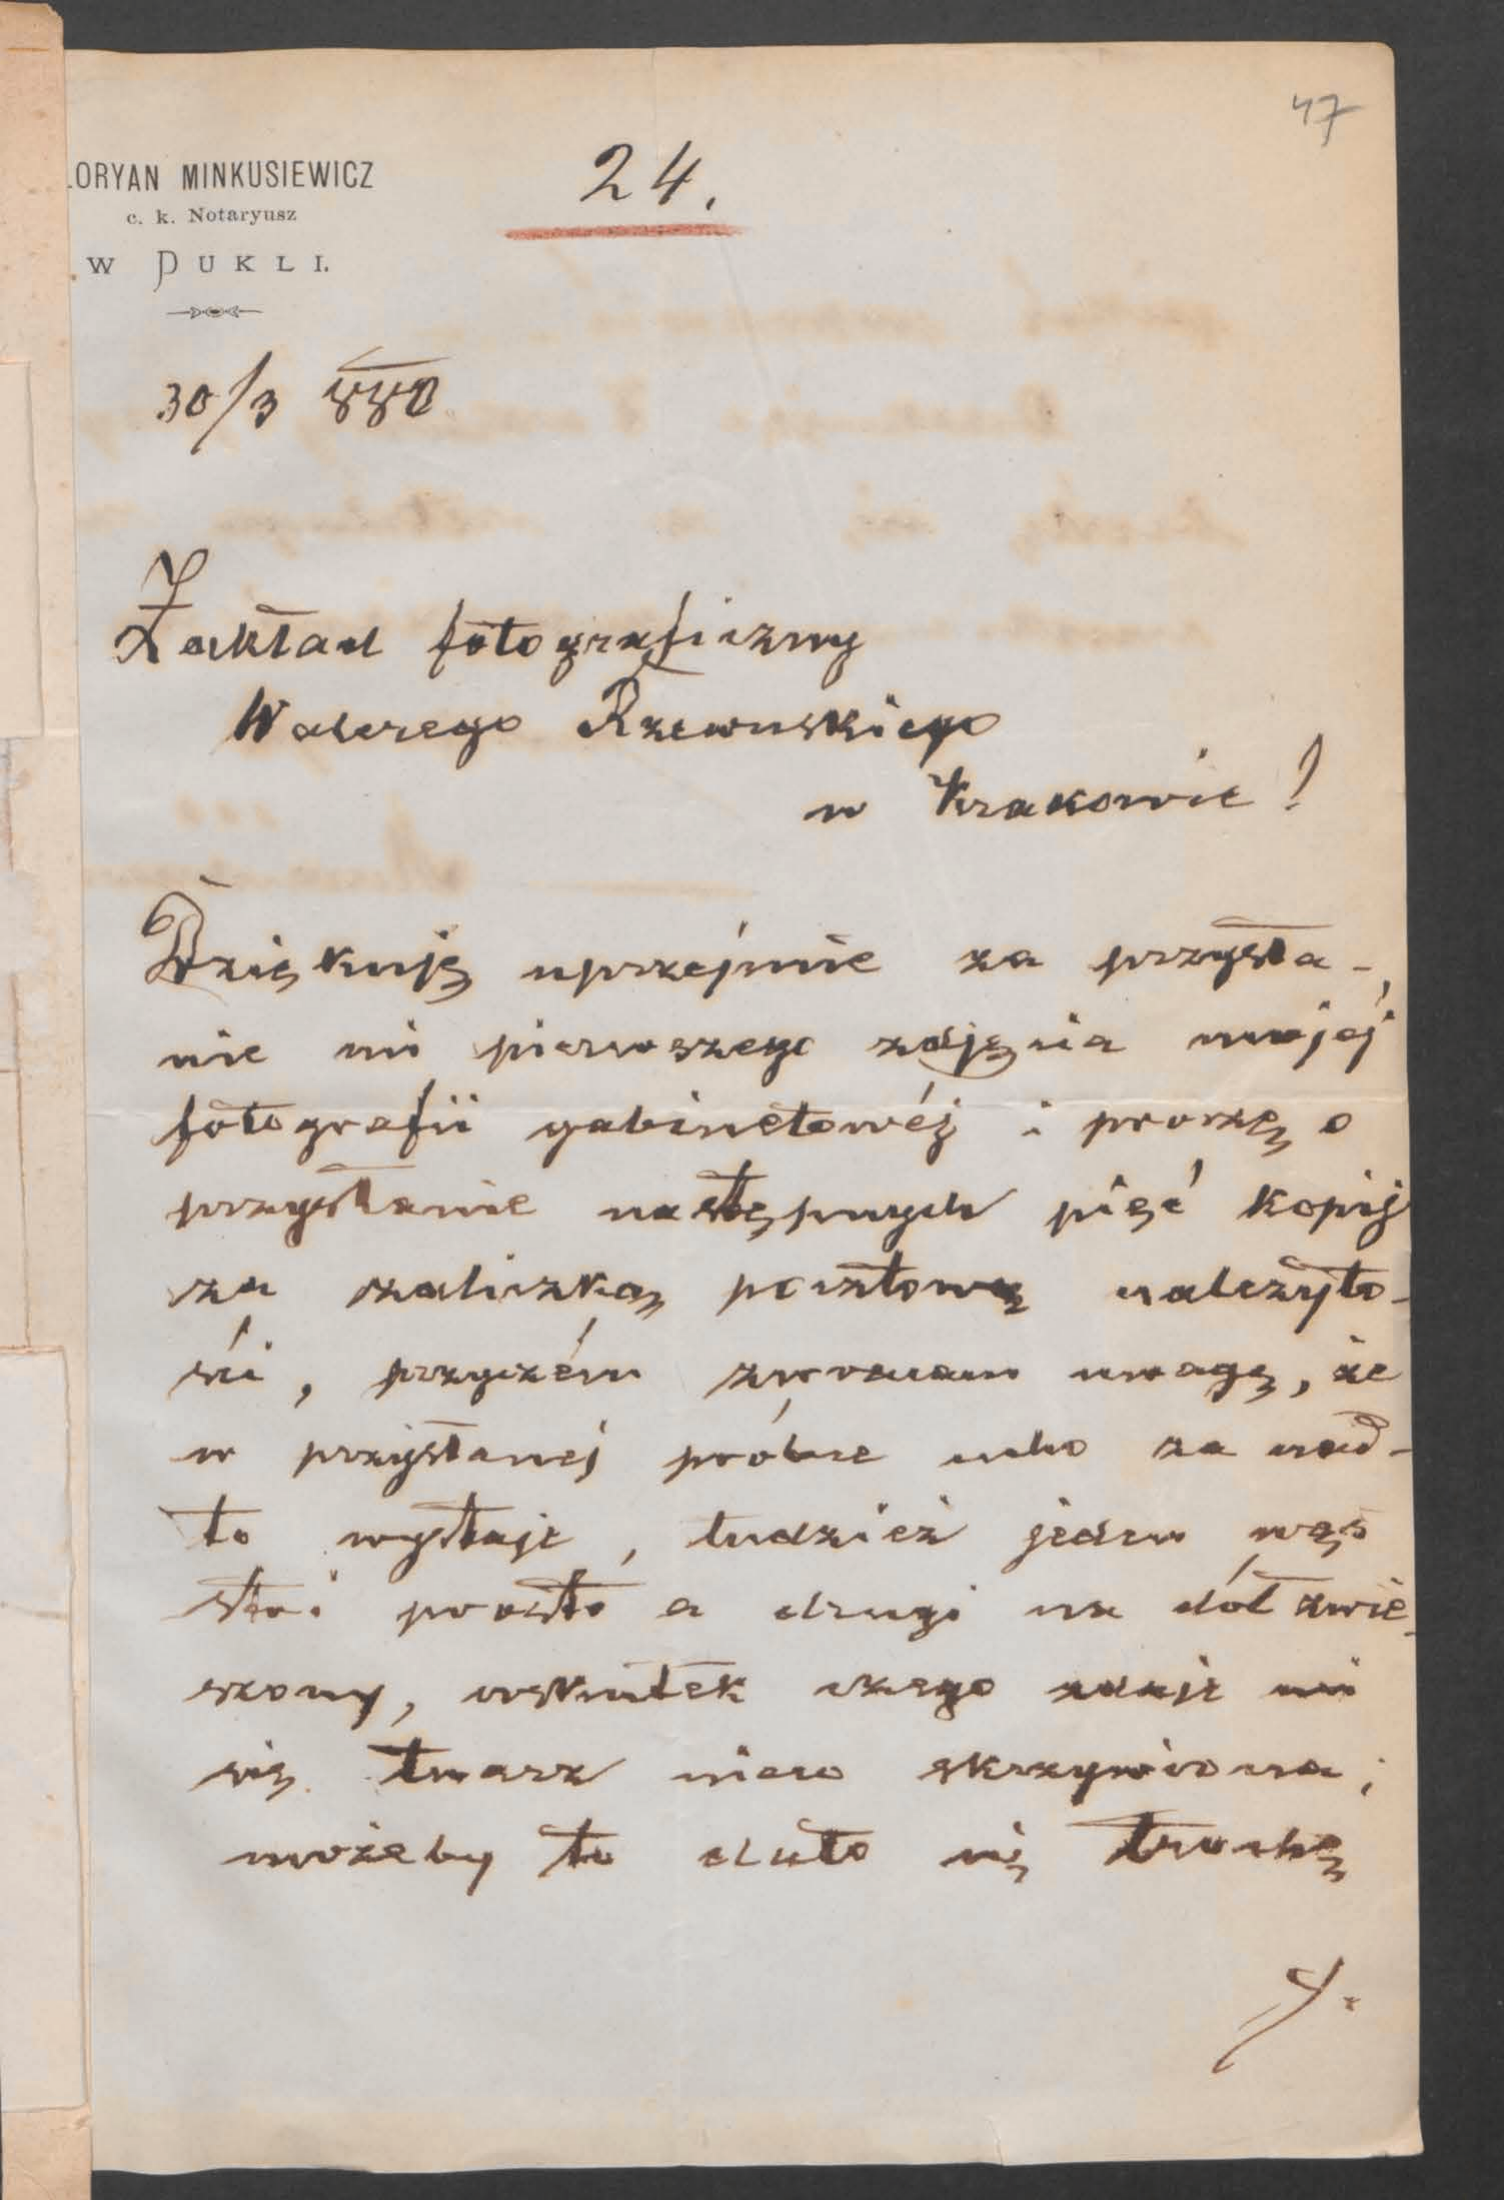 47
LORYAN MINKUSIEWICZ
24.
c. k. Notaryusz
W DUKLI.
30/3 882
Zakład fotograficzny
Walerego Rzewuskiego
w Krakowie!
Dziękuję uprzejmie za przysła-
nie mi pierwszego zdjęcia mojéj
fotografii gabinetowéj i proszę o
przysłanie następnych pięć kopij
za zaliczką pocztową należyto-
ści, przyczém zwracam uwagę, że
w przysłanej próbie ucho za nad-
to wystaje, tudzież jeden wąs
stoi prosto a drugi na dół zwie-
szony, wskutek czego zdaje mi
się twarz nieco skrzywiona;
możeby to dało się trochę